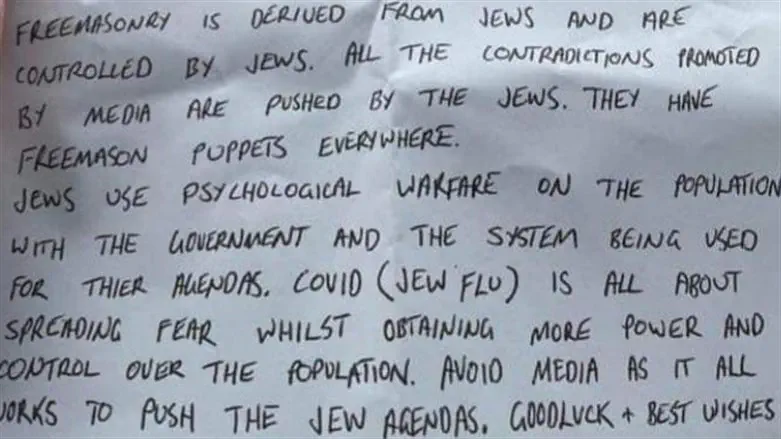 FREEMASONRY IS DERIVED FROM JEWS AND ARE
CONTROLLED BY JEWS. ALL THE CONTRADICTIONS PROMOTED
BY MEDIA ARE PUSHED BY THE JEWS. THEY HAVE
FREEMASON PUPPETS EVERYWHERE.
JEWS USE PSYCHOLOGICAL WARFARE ON THE POPULATION
WITH THE GOVERNMENT AND THE SYSTEM BEING USED
FOR THIER AGENDAS. COVID (JEW FLU) IS ALL ABOUT
SPREADING FEAR WHILST OBTAINING MORE POWER AND
CONTROL OVER THE POPULATION. AVOID MEDIA AS IT ALL
WORKS TO PUSH THE JEW AGENDAS. GOODLUCK + BEST WISHES